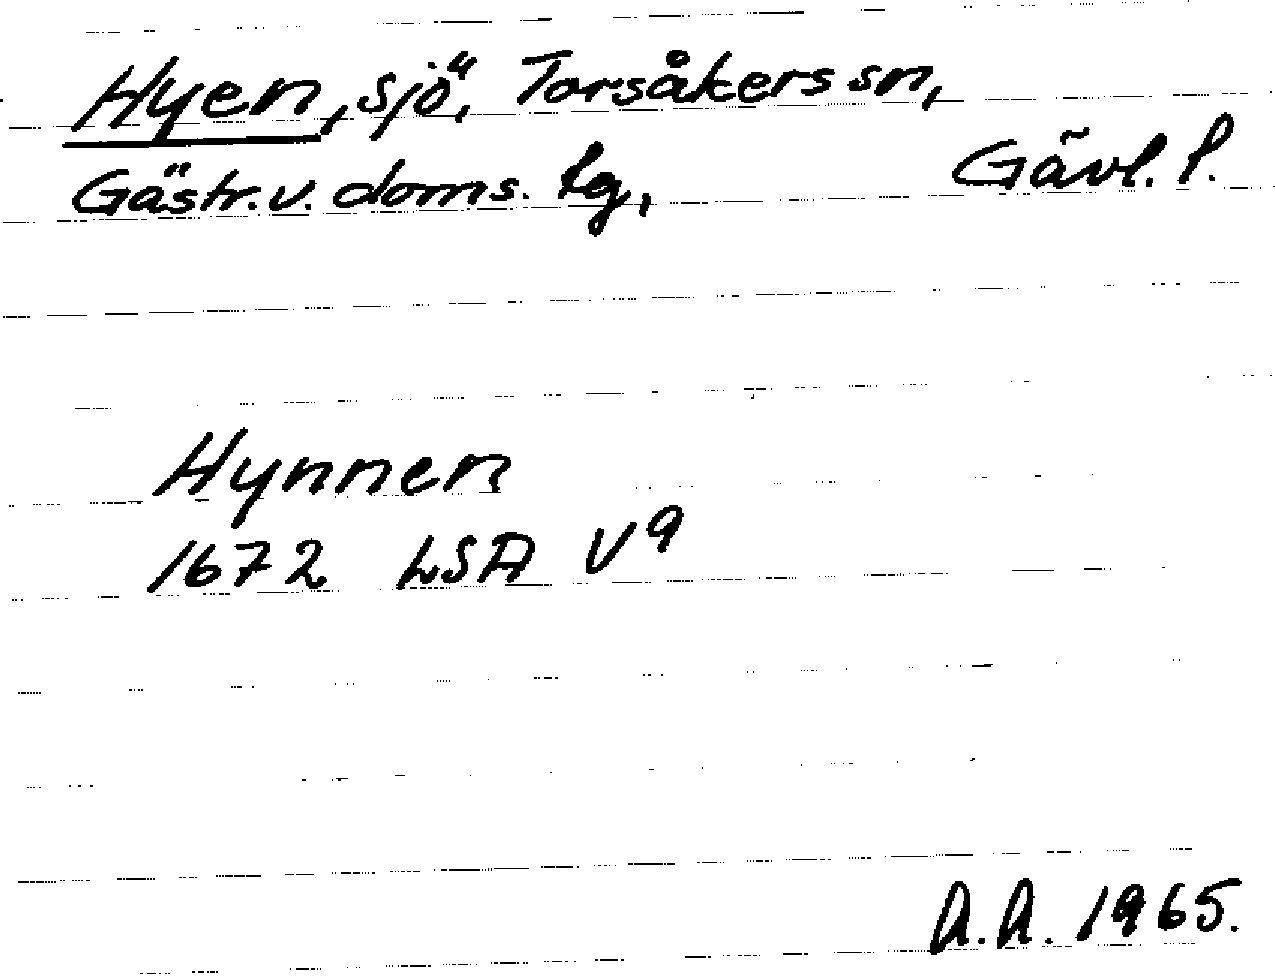 Hyen, sjö, Torsåkers sn,
Gästr. v. doms. tg, Gävl. l.
Hynnen
1672 LSA V9
A.A. 1965.